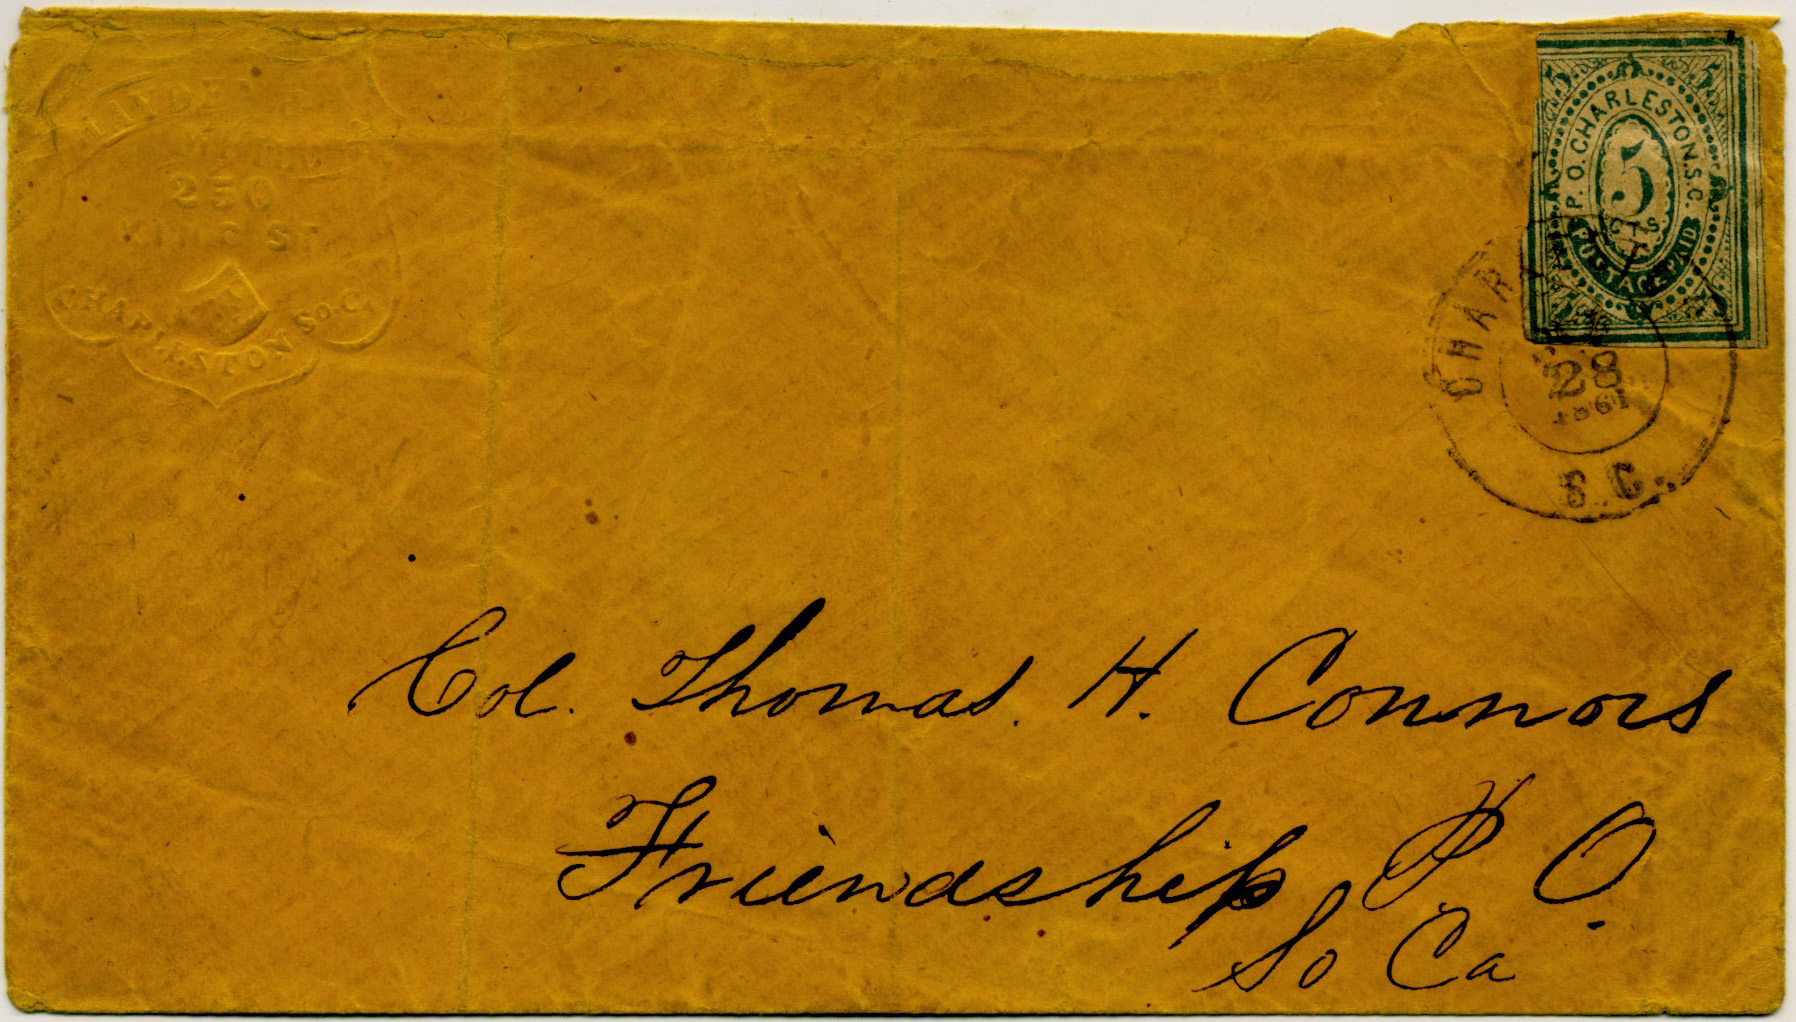 250
KING ST.
CHARLESTON SO. C.
5 5
P. O. CHARLESTON. S. C.
5
CTS
POSTAGE PAID
28
1861
S. C.
Col. Thomas. H. Connors
Friendship P. O.
So Ca